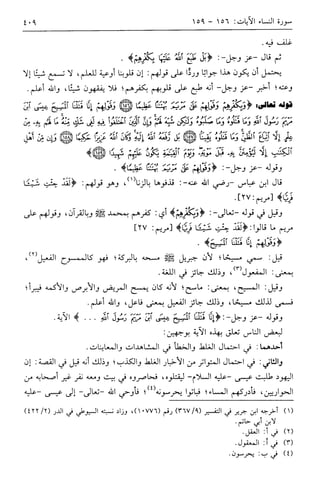 سورة النساء الآيات: ١٥٦ - ١٥٩
٤٠٩
غلف فيه.
ثم قال -عز وجل-: ﴿بَلْ طَبَعَ ٱللَّهُ عَلَيْهَا بِكُفْرِهِمْ﴾.
يحتمل أن يكون هذا جوابًا وردًّا على قولهم: إن قلوبنا أوعية للعلم، لا تسمع شيئًا إلا
وعته؛ أخبر -عز وجل- أنه طبع على قلوبهم بكفرهم؛ فلا يفقهون شيئًا، والله أعلم.
قوله تعالى: ﴿وَبِكُفْرِهِمْ وَقَوْلِهِمْ عَلَىٰ مَرْيَمَ بُهْتَٰنًا عَظِيمًا ﴿١٥٦﴾ وَقَوْلِهِمْ إِنَّا قَتَلْنَا ٱلْمَسِيحَ عِيسَى ٱبْنَ
مَرْيَمَ رَسُولَ ٱللَّهِ وَمَا قَتَلُوهُ وَمَا صَلَبُوهُ وَلَٰكِن شُبِّهَ لَهُمْ وَإِنَّ ٱلَّذِينَ ٱخْتَلَفُوا۟ فِيهِ لَفِى شَكٍّ مِّنْهُ مَا لَهُم بِهِۦ مِنْ
عِلْمٍ إِلَّا ٱتِّبَاعَ ٱلظَّنِّ وَمَا قَتَلُوهُ يَقِينًۢا ﴿١٥٧﴾ بَل رَّفَعَهُ ٱللَّهُ إِلَيْهِ وَكَانَ ٱللَّهُ عَزِيزًا حَكِيمًا ﴿١٥٨﴾ وَإِن مِّنْ أَهْلِ
ٱلْكِتَٰبِ إِلَّا لَيُؤْمِنَنَّ بِهِۦ قَبْلَ مَوْتِهِۦ وَيَوْمَ ٱلْقِيَٰمَةِ يَكُونُ عَلَيْهِمْ شَهِيدًا ﴿١٥٩﴾﴾
وقوله -عز وجل-: ﴿وَبِكُفْرِهِمْ وَقَوْلِهِمْ عَلَىٰ مَرْيَمَ بُهْتَٰنًا عَظِيمًا﴾.
قال ابن عباس -رضي الله عنه-: قذفوها بالزنا(١)، وهو قولهم: ﴿لَقَدْ جِئْتِ شَيْـًٔا
فَرِيًّا﴾ [مريم: ٢٧].
وقيل في قوله -تعالى-: ﴿وَبِكُفْرِهِمْ﴾ أي: كفرهم بمحمد ﷺ وبالقرآن، وقولهم على
مريم ما قالوا: ﴿لَقَدْ جِئْتِ شَيْـًٔا فَرِيًّا﴾ [مريم: ٢٧]
﴿وَقَوْلِهِمْ إِنَّا قَتَلْنَا ٱلْمَسِيحَ﴾.
قيل: سمي مسيحًا؛ لأن جبريل ﷺ مسحه بالبركة؛ فهو كالممسوح الفعيل(٢)،
بمعنى: المفعول(٣)، وذلك جائز في اللغة.
وقيل: المسيح، بمعنى: ماسح؛ لأنه كان يمسح المريض والأبرص والأكمه فيبرأ؛
فسمى لذلك مسيحًا، وذلك جائز الفعيل بمعنى فاعل، والله أعلم.
وقوله -عز وجل-: ﴿وَقَوْلِهِمْ إِنَّا قَتَلْنَا ٱلْمَسِيحَ عِيسَى ٱبْنَ مَرْيَمَ رَسُولَ ٱللَّهِ ...﴾ الآية.
لبعض الناس تعلق بهذه الآية بوجهين:
أحدهما: في احتمال الغلط والخطأ في المشاهدات والمعاينات.
والثاني: في احتمال المتواتر من الأخبار الغلط والكذب؛ وذلك أنه قيل في القصة: إن
اليهود طلبت عيسى -عليه السلام- ليقتلوه، فحاصروه في بيت ومعه نفر غير أصحابه من
الحواريين، فأدركهم المساء؛ فباتوا يحرسونه(٤)؛ فأوحي الله -تعالى- إلى عيسى -عليه
(١) أخرجه ابن جرير في التفسير (٩/٣٦٧) رقم (١٠٧٧٦)، وزاد نسبته السيوطي في الدر (٢/٤٢٢)
لابن أبي حاتم.
(٢) في أ: العقل.
(٣) في أ: المعقول.
(٤) في ب: يحرسون.